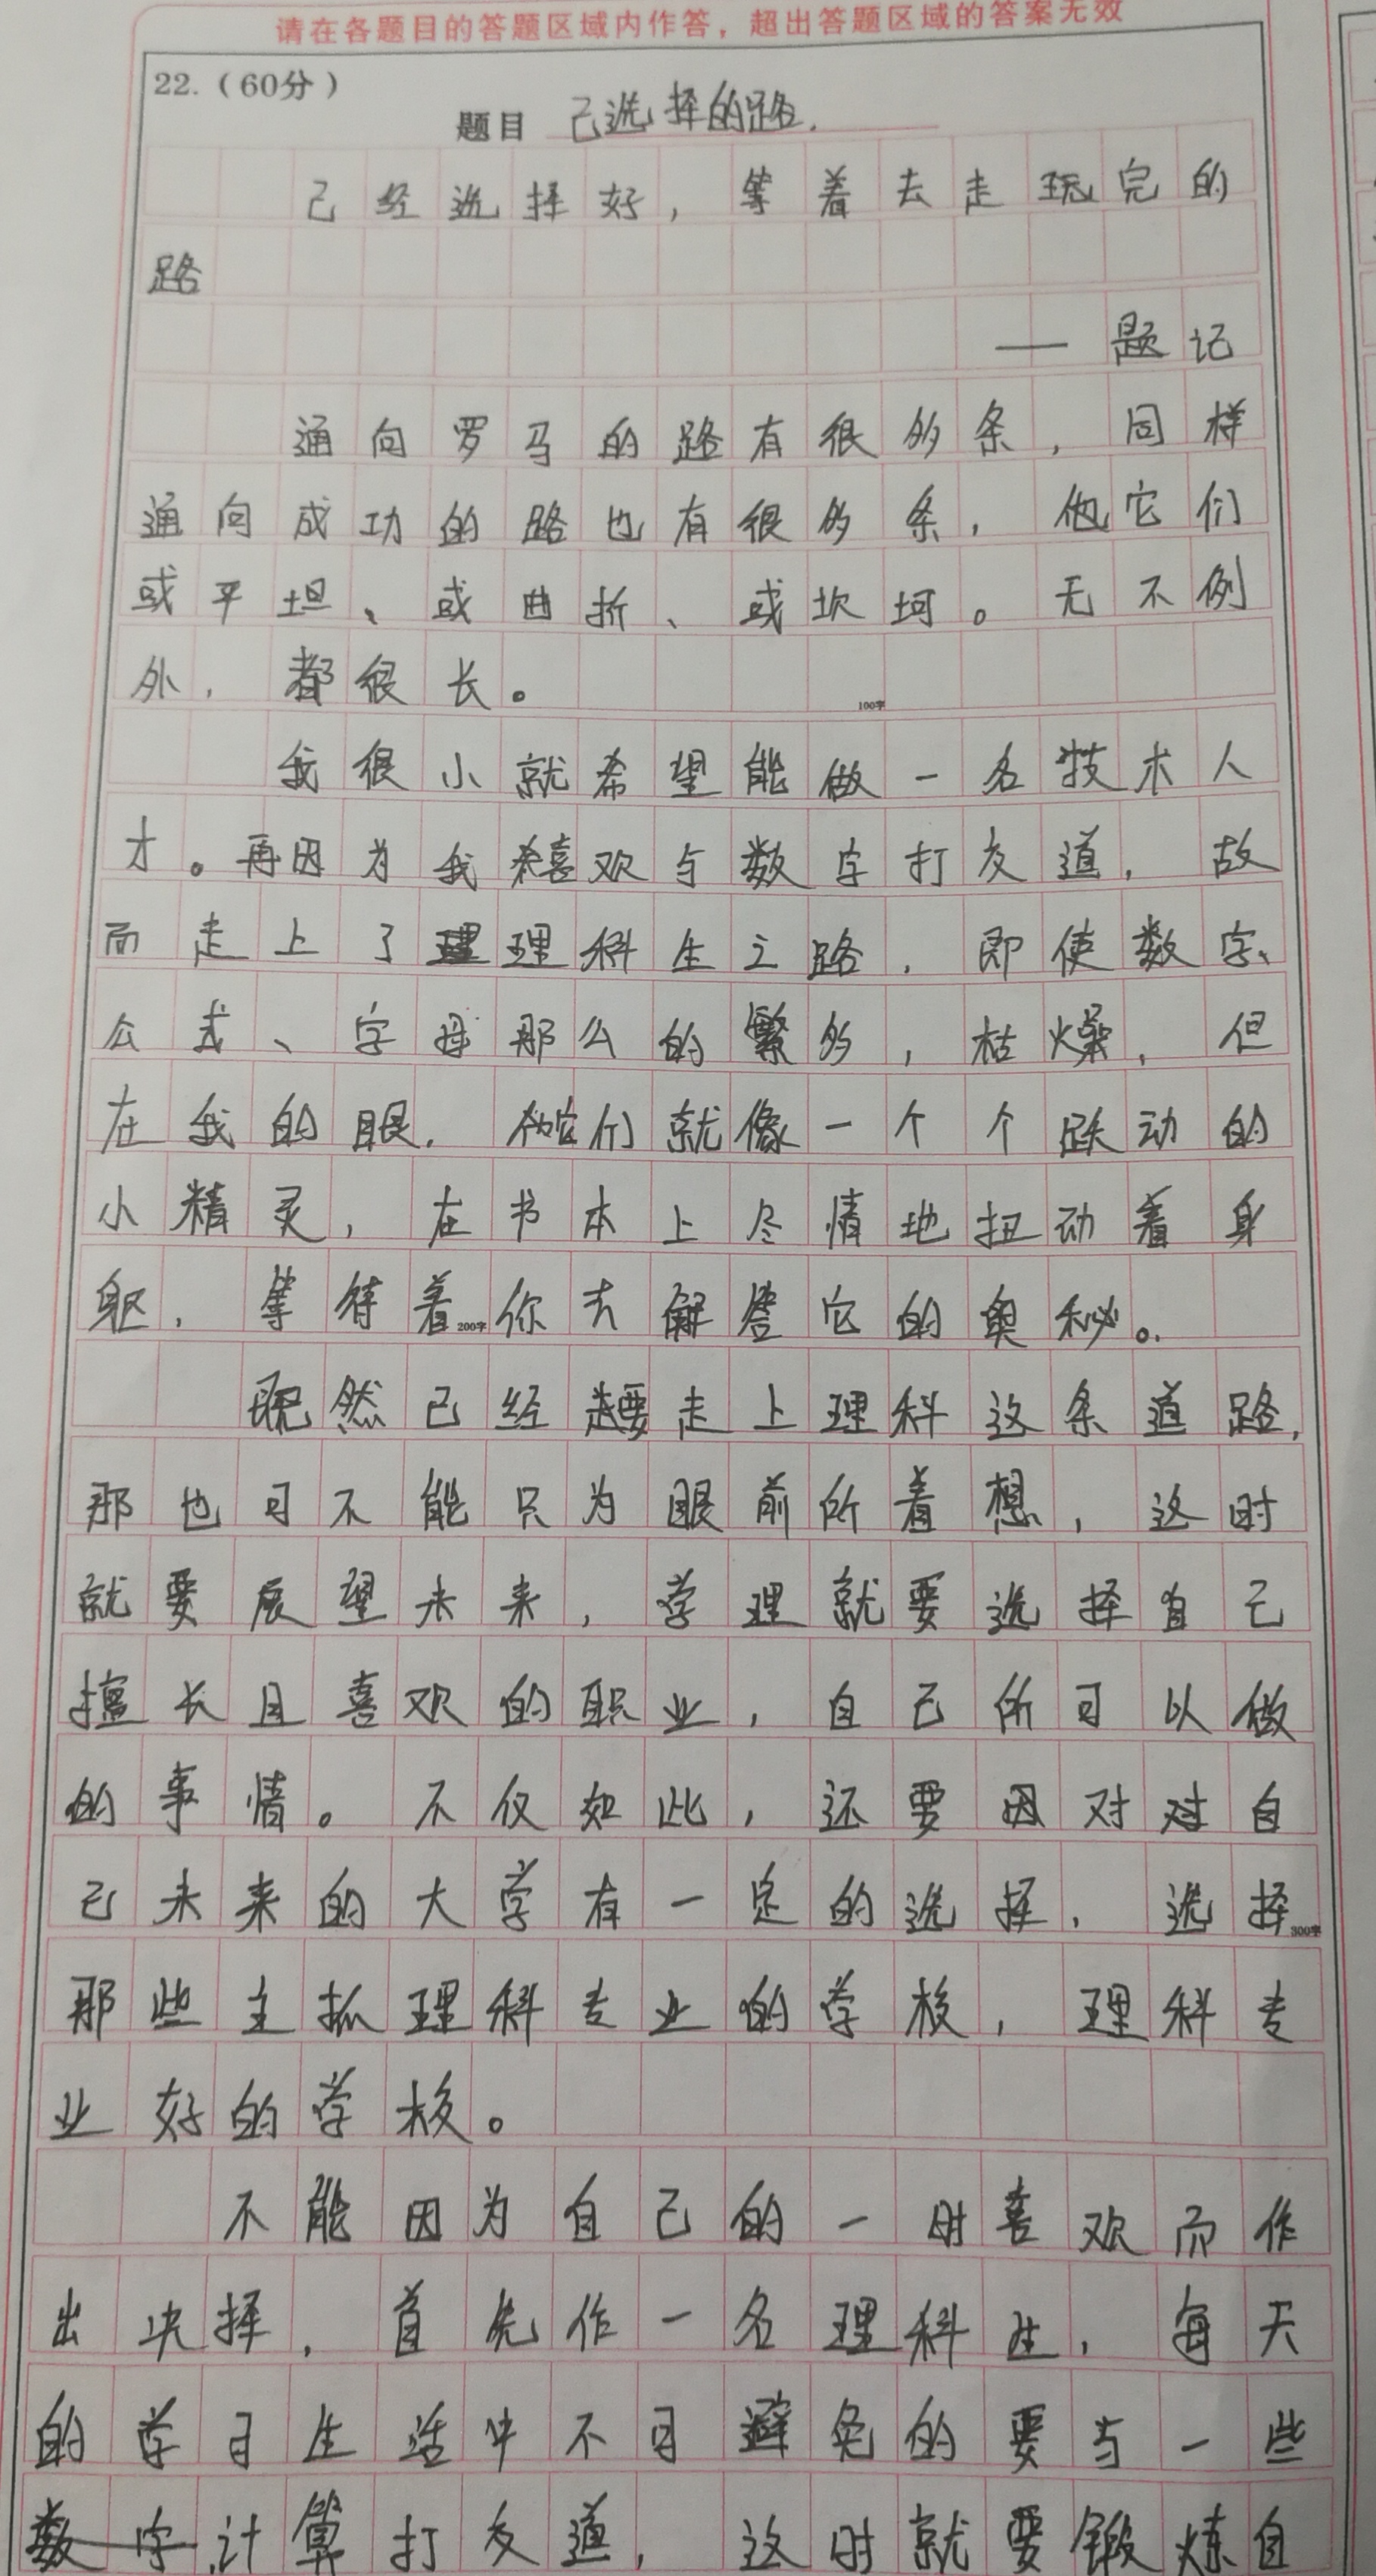 请在各题目的答题区域内作答，超出答题区域的答案无效
22.（60分）
题目 已选择的路.
已经选择好，等着去走玩完的
路
——题记
通向罗马的路有很多条，同样
通向成功的路也有很多条，它们
或平坦、或曲折、或坎坷。无不例
外，都很长。
100字
我很小就希望能做一名技术人
才。再因为我喜欢与数字打交道，故
而走上了理科生之路，即使数字、
公式、字母那么的繁多，枯燥，但
在我的眼，它们就像一个个跃动的
小精灵，在书本上尽情地扭动着身
躯，等待着你去解答它的奥秘。
200字
既然已经要走上理科这条道路，
那也可不能只为眼前所着想，这时
就要展望未来，学理就要选择自己
擅长且喜欢的职业，自己所可以做
的事情。不仅如此，还要因对对自
己未来的大学有一定的选择，选择
300字
那些主抓理科专业的学校，理科专
业好的学校。
不能因为自己的一时喜欢而作
出决择，首先作一名理科生，每天
的学习生活中不可避免的要与一些
数字计算打交道，这时就要锻炼自